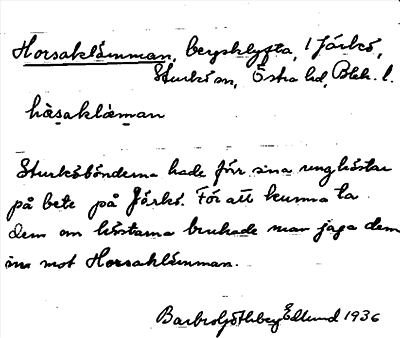 Horsaklämman, bergsklyfta, i Järkö,
Sturkö sn, Östra hd, Blek. l.
håsaklæman
Sturköbönderna hade förr sina unghästar
på bete på Järkö. För att kunna ta
dem om höstarna brukade man jaga dem
in mot Horsaklämman.
Barbro Götheberg Edlund 1936